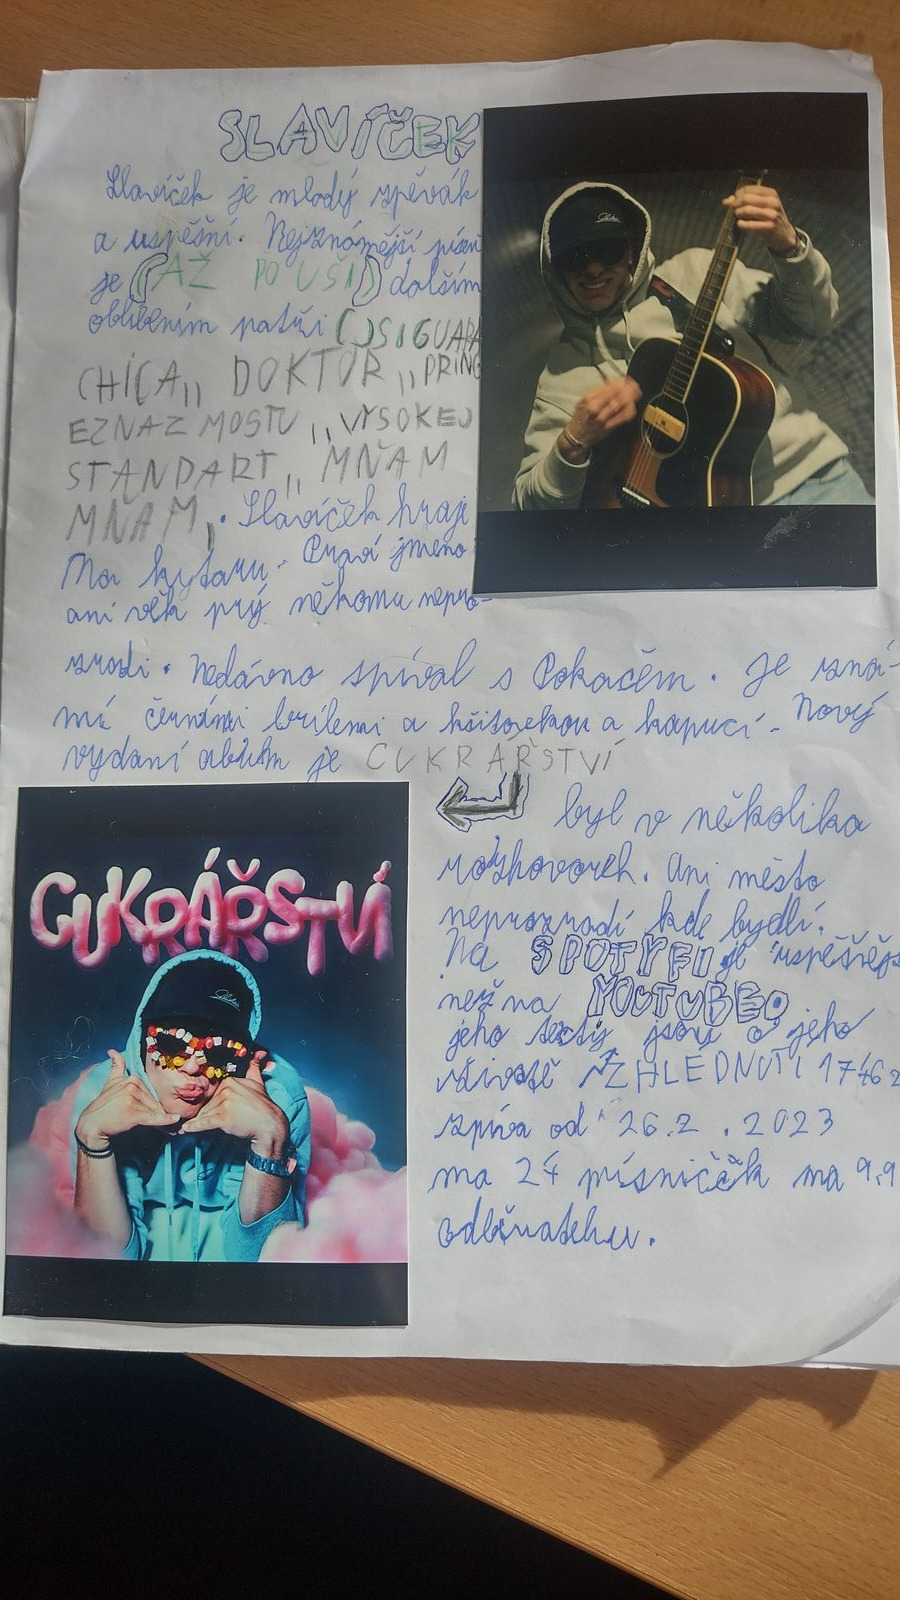 SLAVÍČEK
Slavíček je mladý spěvák
a uspěšní. Nejznámější písň
je (AŽ PO UŠI) dalším
oblibením patři ()SIGUARA
CHÍCA,, DOKTOR ,,PRINC
EZNAZ MOSTU ,,VYSOKEJ
STANDART ,, MŇAM
MŇAM,. Slavíček hraje
Na kytaru. Praví jmeno
ani věk prý někomu nepro-
zradi. Nedávno spíval s Pokačem. Je zná-
mí černími brílemi a kšitovkou a kapucí. Nový
vydaní album je CUKRAŘSTVÍ
byl v několika
rozhovorech. Ani město
neprozradí kde bydlí.
Na SPOTYFI je uspěšnějš
než na YOUTUBEO
jeho texty jsou o jeho
živatě ZHLÉDNUTÍ 17462
zpíva od 26.2 .2023
ma 24 písničěk ma 9.9
odběratelu.
CUKRÁŘSTVÍ